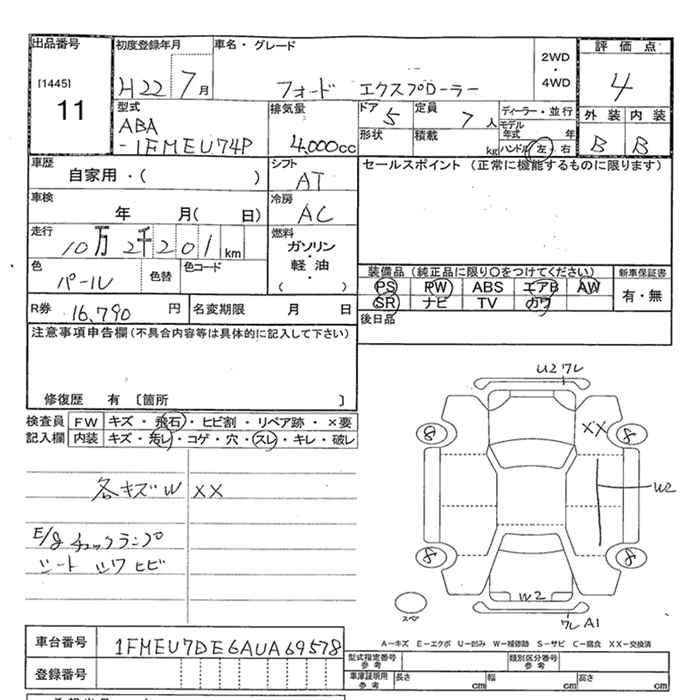 出品番号
[1445]
11
初度登録年月
H22 7月
車名・グレード
フォード エクスプローラー
2WD
・
4WD
評価点
4
外装 内装
B B
型式
ABA
-1FMEU74P
排気量
4,000cc
ドア
5
定員
7人
形状
積載
kg
ディーラー・並行
モデル年式 年
ハンドル 左・右
車歴
自家用・( )
シフト
AT
セールスポイント (正常に機能するものに限ります)
車検
年 月( 日)
冷房
AC
走行
10万2千201km
燃料
ガソリン
・
軽油
・
( )
色
パール
色替
色コード
装備品 (純品品に限り○をつけてください)
PS PW ABS エアB AW
SR ナビ TV カワ
新車保証書
有・無
R券 16,790円
名変期限 月 日
後日品
注意事項申告欄(不具合内容等は具体的に記入して下さい)
修復歴 有 〔箇所 〕
検査員
記入欄
FW キズ・飛石・ヒビ割・リペア跡・×要
内装 キズ・汚レ・コゲ・穴・スレ・キレ・破レ
各キズW XX
E/g チェックランプ
シート シワ ヒビ
U2 ワレ
XX
8 8
W2
8 8
W2
スペア
ワレ A1
A-キズ E-エクボ U-凹み W-補修跡 S-サビ C-腐食 XX-交換済
車台番号
1FMEU7DE6AUA69578
登録番号
型式指定番号
参考
類別区分番号
参考
車庫証明用
参考
長さ cm 幅 cm 高さ cm